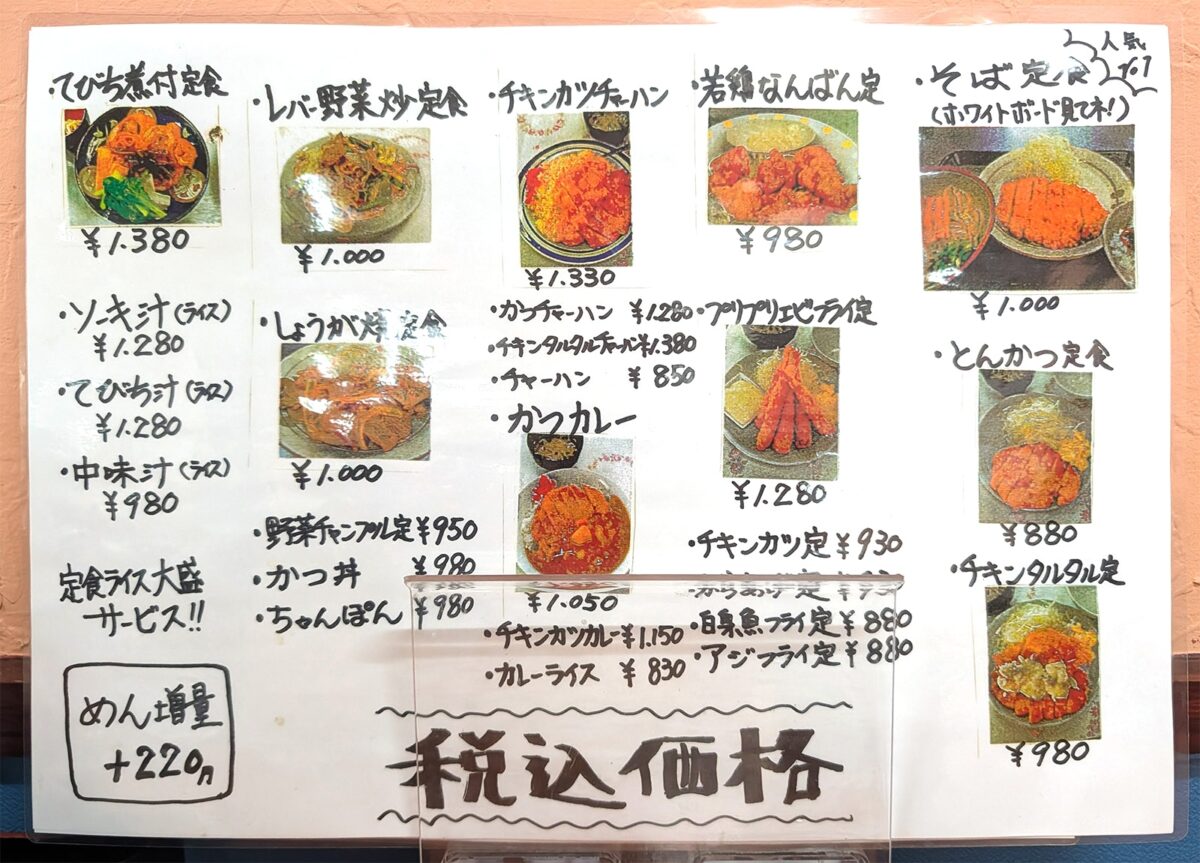 ・てびち煮付定食
¥1.380
・ソーキ汁(ライス)
¥1.280
・てびち汁(ライス)
¥1.280
・中味汁(ライス)
¥980
定食ライス大盛
サービス!!
めん増量
+220円
・レバー野菜炒定食
¥1.000
・しょうが焼定食
¥1.000
・野菜チャンプル定 ¥950
・かつ丼 ¥980
・ちゃんぽん ¥980
・チキンカツチャーハン
¥1.330
・かつチャーハン ¥1.280
・チキンタルタルチャーハン ¥1.380
・チャーハン ¥850
・かつカレー
¥1.050
・チキンカツカレー ¥1.150
・カレーライス ¥830
・若鶏なんばん定
¥980
・プリプリエビフライ定
¥1.280
・チキンカツ定 ¥930
・からあげ定
・白身魚フライ定 ¥880
・アジフライ定 ¥880
人気
No1
・そば定食
(ホワイトボード見てネ!)
¥1.000
・とんかつ定食
¥880
・チキンタルタル定
¥980
税込価格